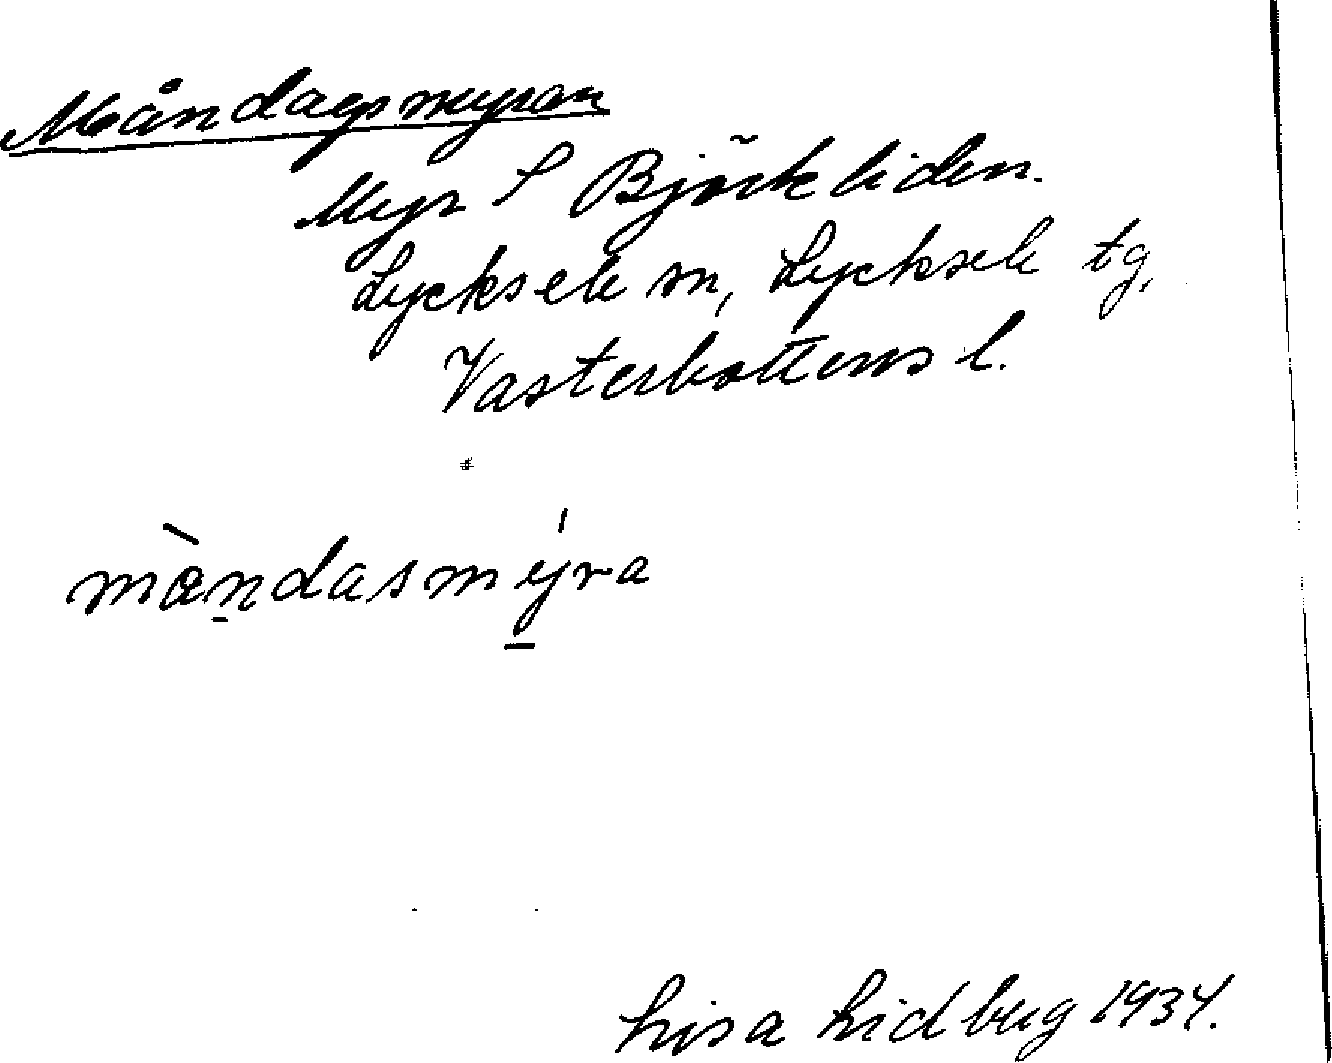 Måndagsmyran
Myr S Björkliden.
Lycksele sn, Lycksele tg,
Västerbottens l.
mændasmyra
Lisa Lidberg 1934.